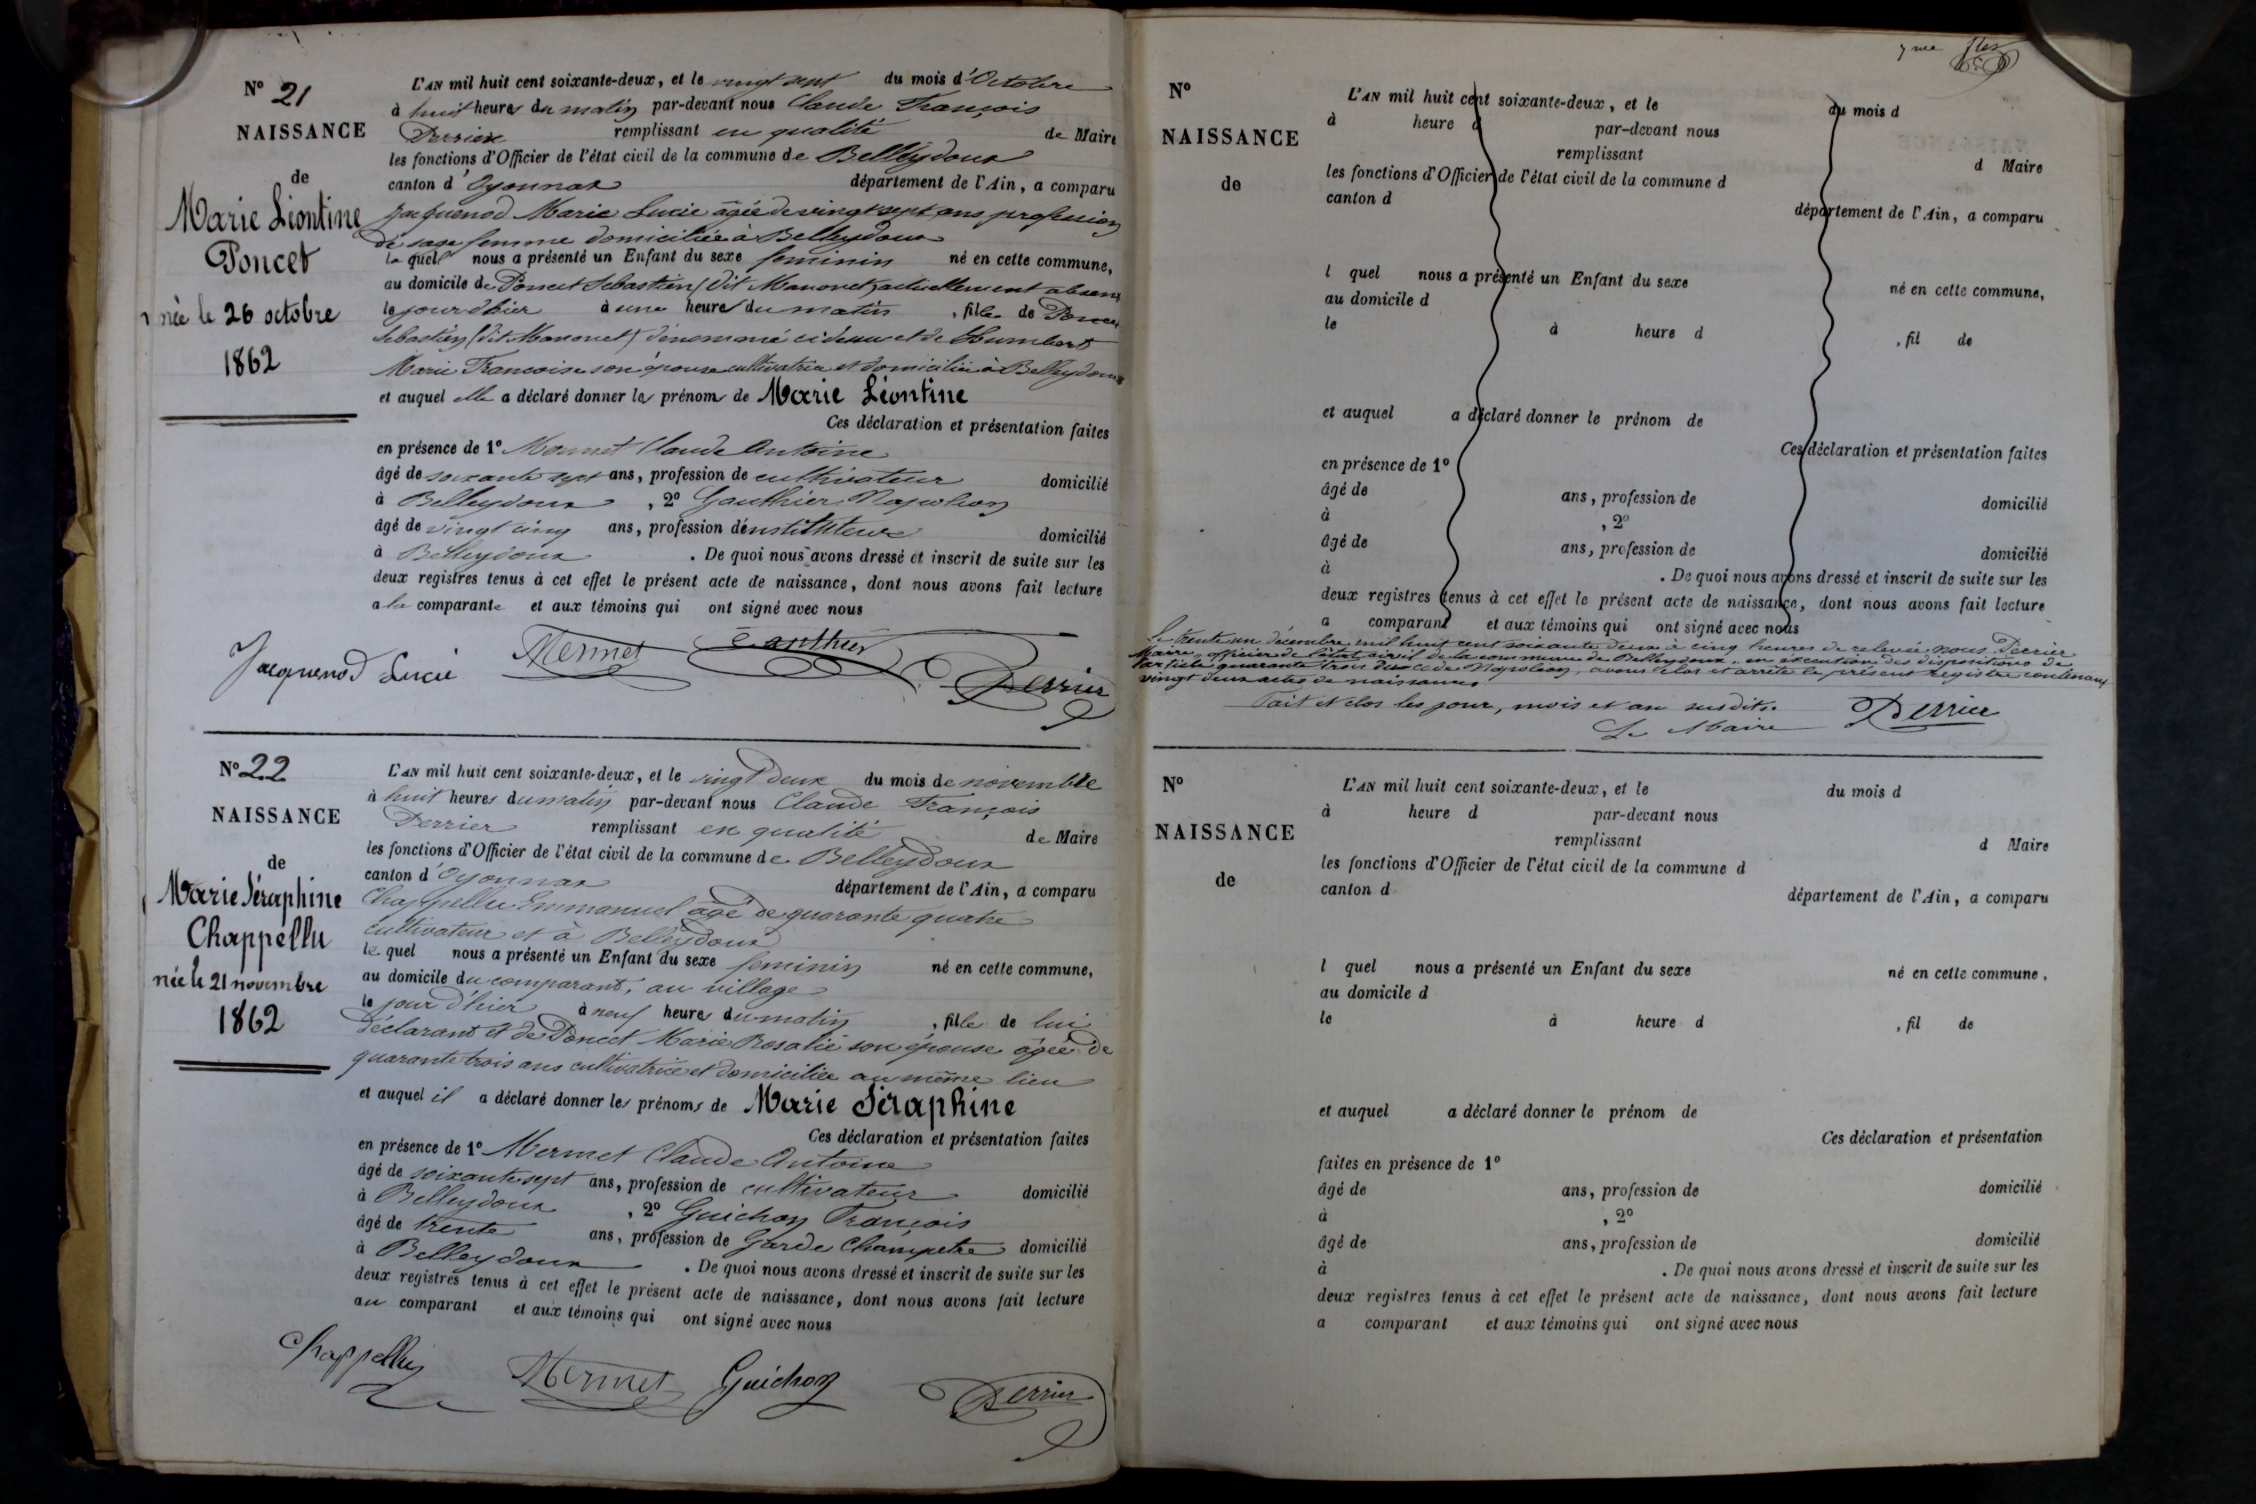 N° 21
NAISSANCE
de
Marie Léontine
Poncet
née le 26 octobre
1862
L'AN mil huit cent soixante-deux, et le vingt sept du mois d'Octobre
à huit heures du matin par-devant nous Claude François
Perrier remplissant en qualité de Maire
les fonctions d'Officier de l'état civil de la commune de Belleydoux
canton d'Oyonnax département de l'Ain, a comparu
Jacquenod Marie Lucie âgée de vingt sept ans profession
de sage femme domiciliée à Belleydoux
la quelle nous a présenté un Enfant du sexe feminin né en cette commune,
au domicile de Poncet Sebastien (dit Manonet) actuellement absent
le jour d'hier à une heure du matin, fille de Poncet
Sebastien (dit Manonet) dénommé ci dessus et de Humbert
Marie Francoise son épouse cultivatrice et domiciliée à Belleydoux
et auquel elle a déclaré donner les prénoms de Marie Léontine
Ces déclaration et présentation faites
en présence de 1° Mermet Claude Antoine
âgé de soixante sept ans, profession de cultivateur domicilié
à Belleydoux, 2° Gauthier Napoléon
âgé de vingt cinq ans, profession d'instituteur domicilié
à Belleydoux. De quoi nous avons dressé et inscrit de suite sur les
deux registres tenus à cet effet le présent acte de naissance, dont nous avons fait lecture
a la comparante et aux témoins qui ont signé avec nous
Jacquenod Lucie Mermet Gauthier Perrier
N° 22
NAISSANCE
de
Marie Séraphine
Chappellu
née le 21 novembre
1862
L'AN mil huit cent soixante-deux, et le vingt deux du mois de novembre
à huit heures du matin par-devant nous Claude François
Perrier remplissant en qualité de Maire
les fonctions d'Officier de l'état civil de la commune de Belleydoux
canton d'Oyonnax département de l'Ain, a comparu
Chappellu Emmanuel âgé de quarante quatre
cultivateur et à Belleydoux
le quel nous a présenté un Enfant du sexe feminin né en cette commune,
au domicile du comparant, au village
le jour d'hier à neuf heures du matin, fille de lui
déclarant et de Poncet Marie Rosalie son épouse âgée de
quarante trois ans cultivatrice et domiciliée au même lieu
et auquel il a déclaré donner les prénoms de Marie Séraphine
Ces déclaration et présentation faites
en présence de 1° Mermet Claude Antoine
âgé de soixante sept ans, profession de cultivateur domicilié
à Belleydoux, 2° Guichon François
âgé de trente ans, profession de Garde Champetre domicilié
à Belleydoux. De quoi nous avons dressé et inscrit de suite sur les
deux registres tenus à cet effet le présent acte de naissance, dont nous avons fait lecture
au comparant et aux témoins qui ont signé avec nous
Chappellu Mermet Guichon Perrier
N°
NAISSANCE
de
L'AN mil huit cent soixante-deux, et le du mois d
à heure d par-devant nous
remplissant d Maire
les fonctions d'Officier de l'état civil de la commune d
canton d département de l'Ain, a comparu
l quel nous a présenté un Enfant du sexe né en cette commune,
au domicile d
le à heure d , fil de
et auquel a déclaré donner le prénom de
Ces déclaration et présentation faites
en présence de 1°
âgé de ans, profession de domicilié
à , 2°
âgé de ans, profession de domicilié
à . De quoi nous avons dressé et inscrit de suite sur les
deux registres tenus à cet effet le présent acte de naissance, dont nous avons fait lecture
a comparant et aux témoins qui ont signé avec nous
Le trente un décembre mil huit cent soixante deux à cinq heures de relevée nous Perrier
Maire, officier de l'état civil de la commune de Belleydoux, en exécution des dispositions de
l'article quarante trois du code Napoléon, avons clos et arrêté le présent registre contenant
vingt deux actes de naissances
Fait et clos les jour, mois et an susdits.
Le Maire Perrier
N°
NAISSANCE
de
L'AN mil huit cent soixante-deux, et le du mois d
à heure d par-devant nous
remplissant d Maire
les fonctions d'Officier de l'état civil de la commune d
canton d département de l'Ain, a comparu
l quel nous a présenté un Enfant du sexe né en cette commune.
au domicile d
le à heure d , fil de
et auquel a déclaré donner le prénom de
Ces déclaration et présentation
faites en présence de 1°
âgé de ans, profession de domicilié
à , 2°
âgé de ans, profession de domicilié
à . De quoi nous avons dressé et inscrit de suite sur les
deux registres tenus à cet effet le présent acte de naissance, dont nous avons fait lecture
a comparant et aux témoins qui ont signé avec nous